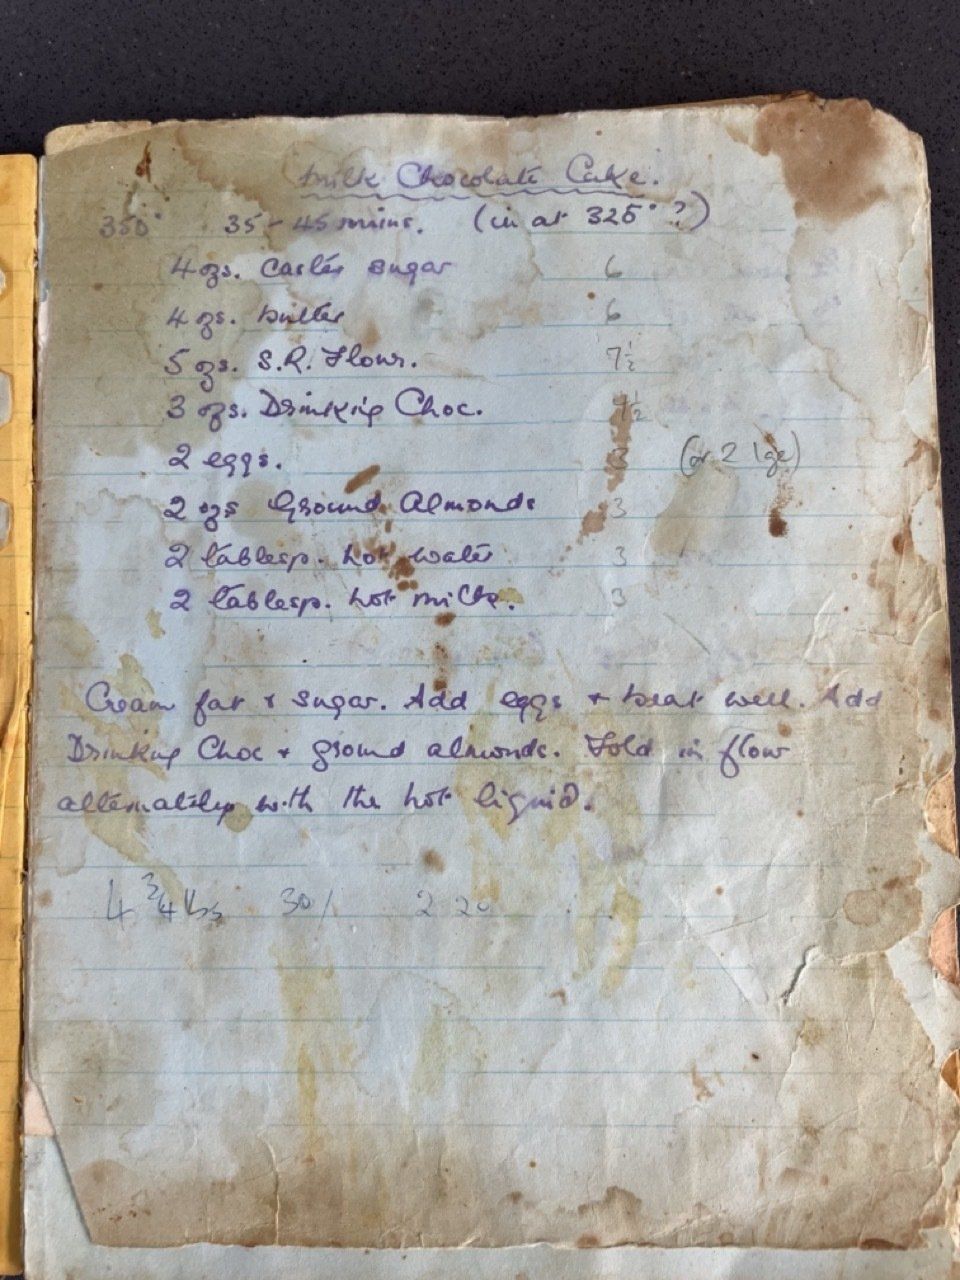 Milk Chocolate Cake.
350° 35-45 mins. (in at 325° ?)
4 ozs. Caster sugar 6
4 ozs. butter 6
5 ozs. S.R. Flour. 7½
3 ozs. Drinking Choc. 4½
2 eggs. 3 (or 2 lge)
2 ozs Ground Almonds 3
2 tablesp. hot water 3
2 tablesp. hot milk. 3
Cream fat + sugar. Add eggs + beat well. Add
Drinking Choc + ground almonds. Fold in flour
alternately with the hot liquid.
4 3/4 lbs 30/ 2 20